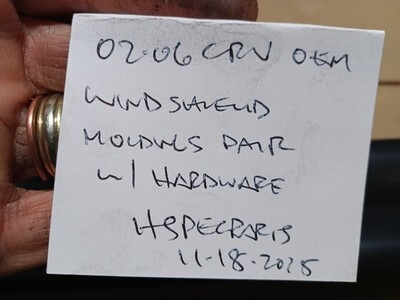 02-06 CRV OEM
WINDSHIELD
MOLDINGS PAIR
W/ HARDWARE
HSPECRARIS
11-18-2025